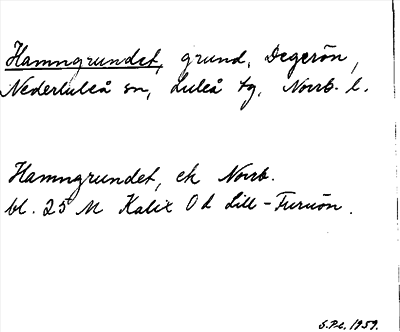 Hamngrundet, grund, Degerön,
Nederluleå sn, Luleå tg, Norrb. l.
Hamngrundet, ek Norrb.
bl. 25 M Kalix Od Lill-Furuön.
S.P.C. 1959.